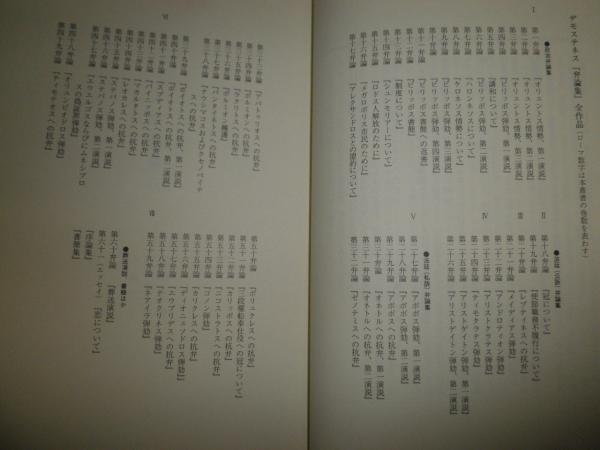 デモステネス『弁論集』全作品（ローマ数字は本叢書の巻数を表わす）
I
●政治弁論集
第一弁論 『オリュントス情勢、第一演説』
第二弁論 『オリュントス情勢、第二演説』
第三弁論 『オリュントス情勢、第三演説』
第四弁論 『ピリッポス弾劾、第一演説』
第五弁論 『講和について』
第六弁論 『ピリッポス弾劾、第二演説』
第七弁論 『ハロンネソスについて』
第八弁論 『ケロネソス情勢について』
第九弁論 『ピリッポス弾劾、第三演説』
第十弁論 『ピリッポス弾劾、第四演説』
第十一弁論 『ピリッポス書簡への返書』
第十二弁論 『ピリッポス書簡』
第十三弁論 『制度について』
第十四弁論 『シュンモリアーについて』
第十五弁論 『ロドス人解放のために』
第十六弁論 『メガロポリス市民のために』
第十七弁論 『アレクサンドロスとの盟約について』
●法廷（公訴）弁論集
II
第十八弁論 『冠について』
第十九弁論 『使節職務不履行について』
III
第二十弁論 『レプティネスへの抗弁』
第二十一弁論 『メイディアス弾劾』
第二十二弁論 『アンドロティオン弾劾』
IV
第二十三弁論 『アリストクラテス弾劾』
第二十四弁論 『ティモクラテス弾劾』
第二十五弁論 『アリストゲイトン弾劾、第一演説』
第二十六弁論 『アリストゲイトン弾劾、第二演説』
●法廷（私訴）弁論集
V
第二十七弁論 『アポボス弾劾、第一演説』
第二十八弁論 『アポボス弾劾、第二演説』
第二十九弁論 『アポボスへの抗弁』
第三十弁論 『オネトルへの抗弁、第一演説』
第三十一弁論 『オネトルへの抗弁、第二演説』
第三十二弁論 『ゼノテミスへの抗弁』
第三十三弁論 『アパトゥリオスへの抗弁』
第三十四弁論 『ポルミオンへの抗弁』
第三十五弁論 『ラクリトスへの抗弁』
第三十六弁論 『ポルミオン擁護』
第三十七弁論 『パンタイネトスへの抗弁』
第三十八弁論 『ナウシマコスおよびクセノペイテスへの抗弁』
VI
第三十九弁論 『ボイオトスへの抗弁、第一演説』
第四十弁論 『ボイオトスへの抗弁、第二演説』
第四十一弁論 『スプディアスへの抗弁』
第四十二弁論 『パイニッポスへの抗弁』
第四十三弁論 『マカルタトスへの抗弁』
第四十四弁論 『レオカレスへの抗弁』
第四十五弁論 『ステパノス弾劾、第一演説』
第四十六弁論 『ステパノス弾劾、第二演説』
第四十七弁論 『エウエルゴスならびにムネシブロスの偽証罪弾劾』
第四十八弁論 『オリュンピオドロス弾劾』
第四十九弁論 『ティモテオスへの抗弁』
第五十弁論 『ポリュクレスへの抗弁』
第五十一弁論 『三段櫂船奉仕役への冠について』
第五十二弁論 『カリッポスへの抗弁』
第五十三弁論 『ニコストラトスへの抗弁』
第五十四弁論 『コノン弾劾』
第五十五弁論 『カリクレスへの抗弁』
第五十六弁論 『ディオニュソドロス弾劾』
第五十七弁論 『エウブリデスへの抗弁』
第五十八弁論 『テオクリネス弾劾』
第五十九弁論 『ネアイラ弾劾』
VII
●葬送演説 ●録ほか
第六十弁論 『葬送演説』
第六十一（エッセイ）『恋について』
『序論集』
『書簡集』